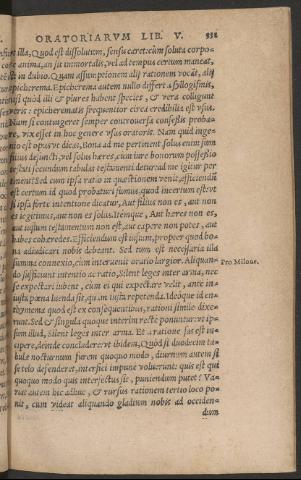 ORATORIARVM LIB. V. 331
sicut illa, Quod est dissolutum, sensu caret: cùm soluta corpo-
re anima, an sit immortalis, vel ad tempus certum maneat,
sit in dubio. Quam assumptionem alij rationem vocãt, alij
epicherema. Epicherema autem nullo differt à syllogismis,
nisi quòd illi & plures habent species, & vera colligunt
veris: epichirematis frequentior circa credibilia est vsus.
Nam si contingeret semper controuersa confessis proba-
re, vix esset in hoc genere vsus oratoris. Nam quid inge-
nio est opus vt dicas, Bona ad me pertinent, solus enim sum
filius defuncti, vel solus hæres, cùm iure bonorum possessio
testati secundum tabulas testamenti detur, ad me igitur per-
tinent? Sed cùm ipsa ratio in quæstionem venit, efficiendũ
est certum id quod probaturi sumus, quod incertum est: vt
si ipsa fortè intentione dicatur, Aut filius non es, aut non
es legitimus, aut non es solus. Itémque, Aut hæres non es,
aut iustum testamentum non est, aut capere non potes, aut
habes cohæredes. Efficiendum est iustum, propter quod bo-
na adiudicari nobis debeant. Sed tum est necessaria illa
summa connexio, cùm interuenit oratio largior. Aliquan-
do sufficiunt intentio ac ratio, Silent leges inter arma, nec
se expectari iubent, cùm ei qui expectare velit, antè in-
iusta pœna luenda sit, quàm iusta repetenda. Ideóque id en-
thymema quod est ex consequentibus, rationi simile dixe-
runt. Sed & singula quoque interim rectè ponuntur: vt ip-
sum illud, Silent leges inter arma. Et à ratione fas est in-
cipere, deinde concludere: vt ibidem, Quòd si duodecim ta-
bulæ nocturnum furem quoquo modo, diurnum autem si
se telo defenderet, interfici impune voluerunt: quis est qui
quoquo modo quis interfectus sit, puniendum putet? Va-
riat autem hic adhuc, & rursus rationem tertio loco po-
nit, cum videat aliquando gladium nobis ad occiden-
dum
Pro Milone.